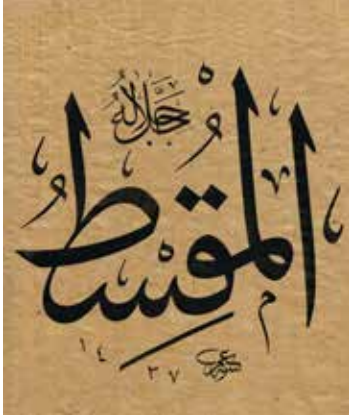 جل جلاله
المقسط
١٤٣٧